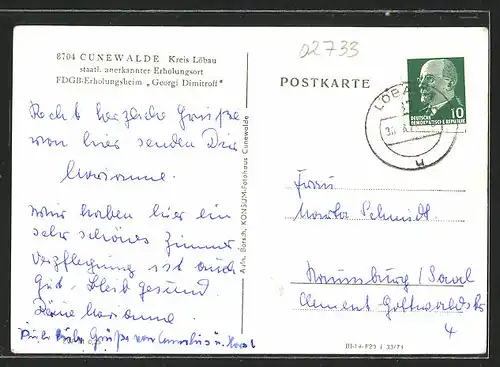 02733
8704 CUNEWALDE Kreis Löbau
staatl. anerkannter Erholungsort
FDGB-Erholungsheim „Georgi Dimitroff"
Recht herzliche Grüße
von hier senden Dir
Marianne.
Wir haben hier ein
sehr schönes Zimmer
Verpflegung ist auch
gut. Bleib gesund
Deine Marianne.
liebe Grüße von Cornelius u. Horst
Aufn. Borsch, KONSUM-Fotohaus Cunewalde
POSTKARTE
LÖBAU
DEUTSCHE
DEMOKRATISCHE REPUBLIK
10
Frau
Marta Schmidt.
Naumburg/Saal
Clement Gottwaldstr
4